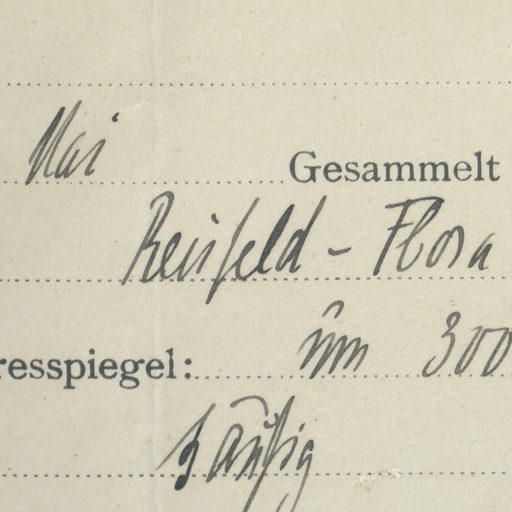 Mai Gesammelt
Reisfeld - Flora
resspiegel: um 300
häufig